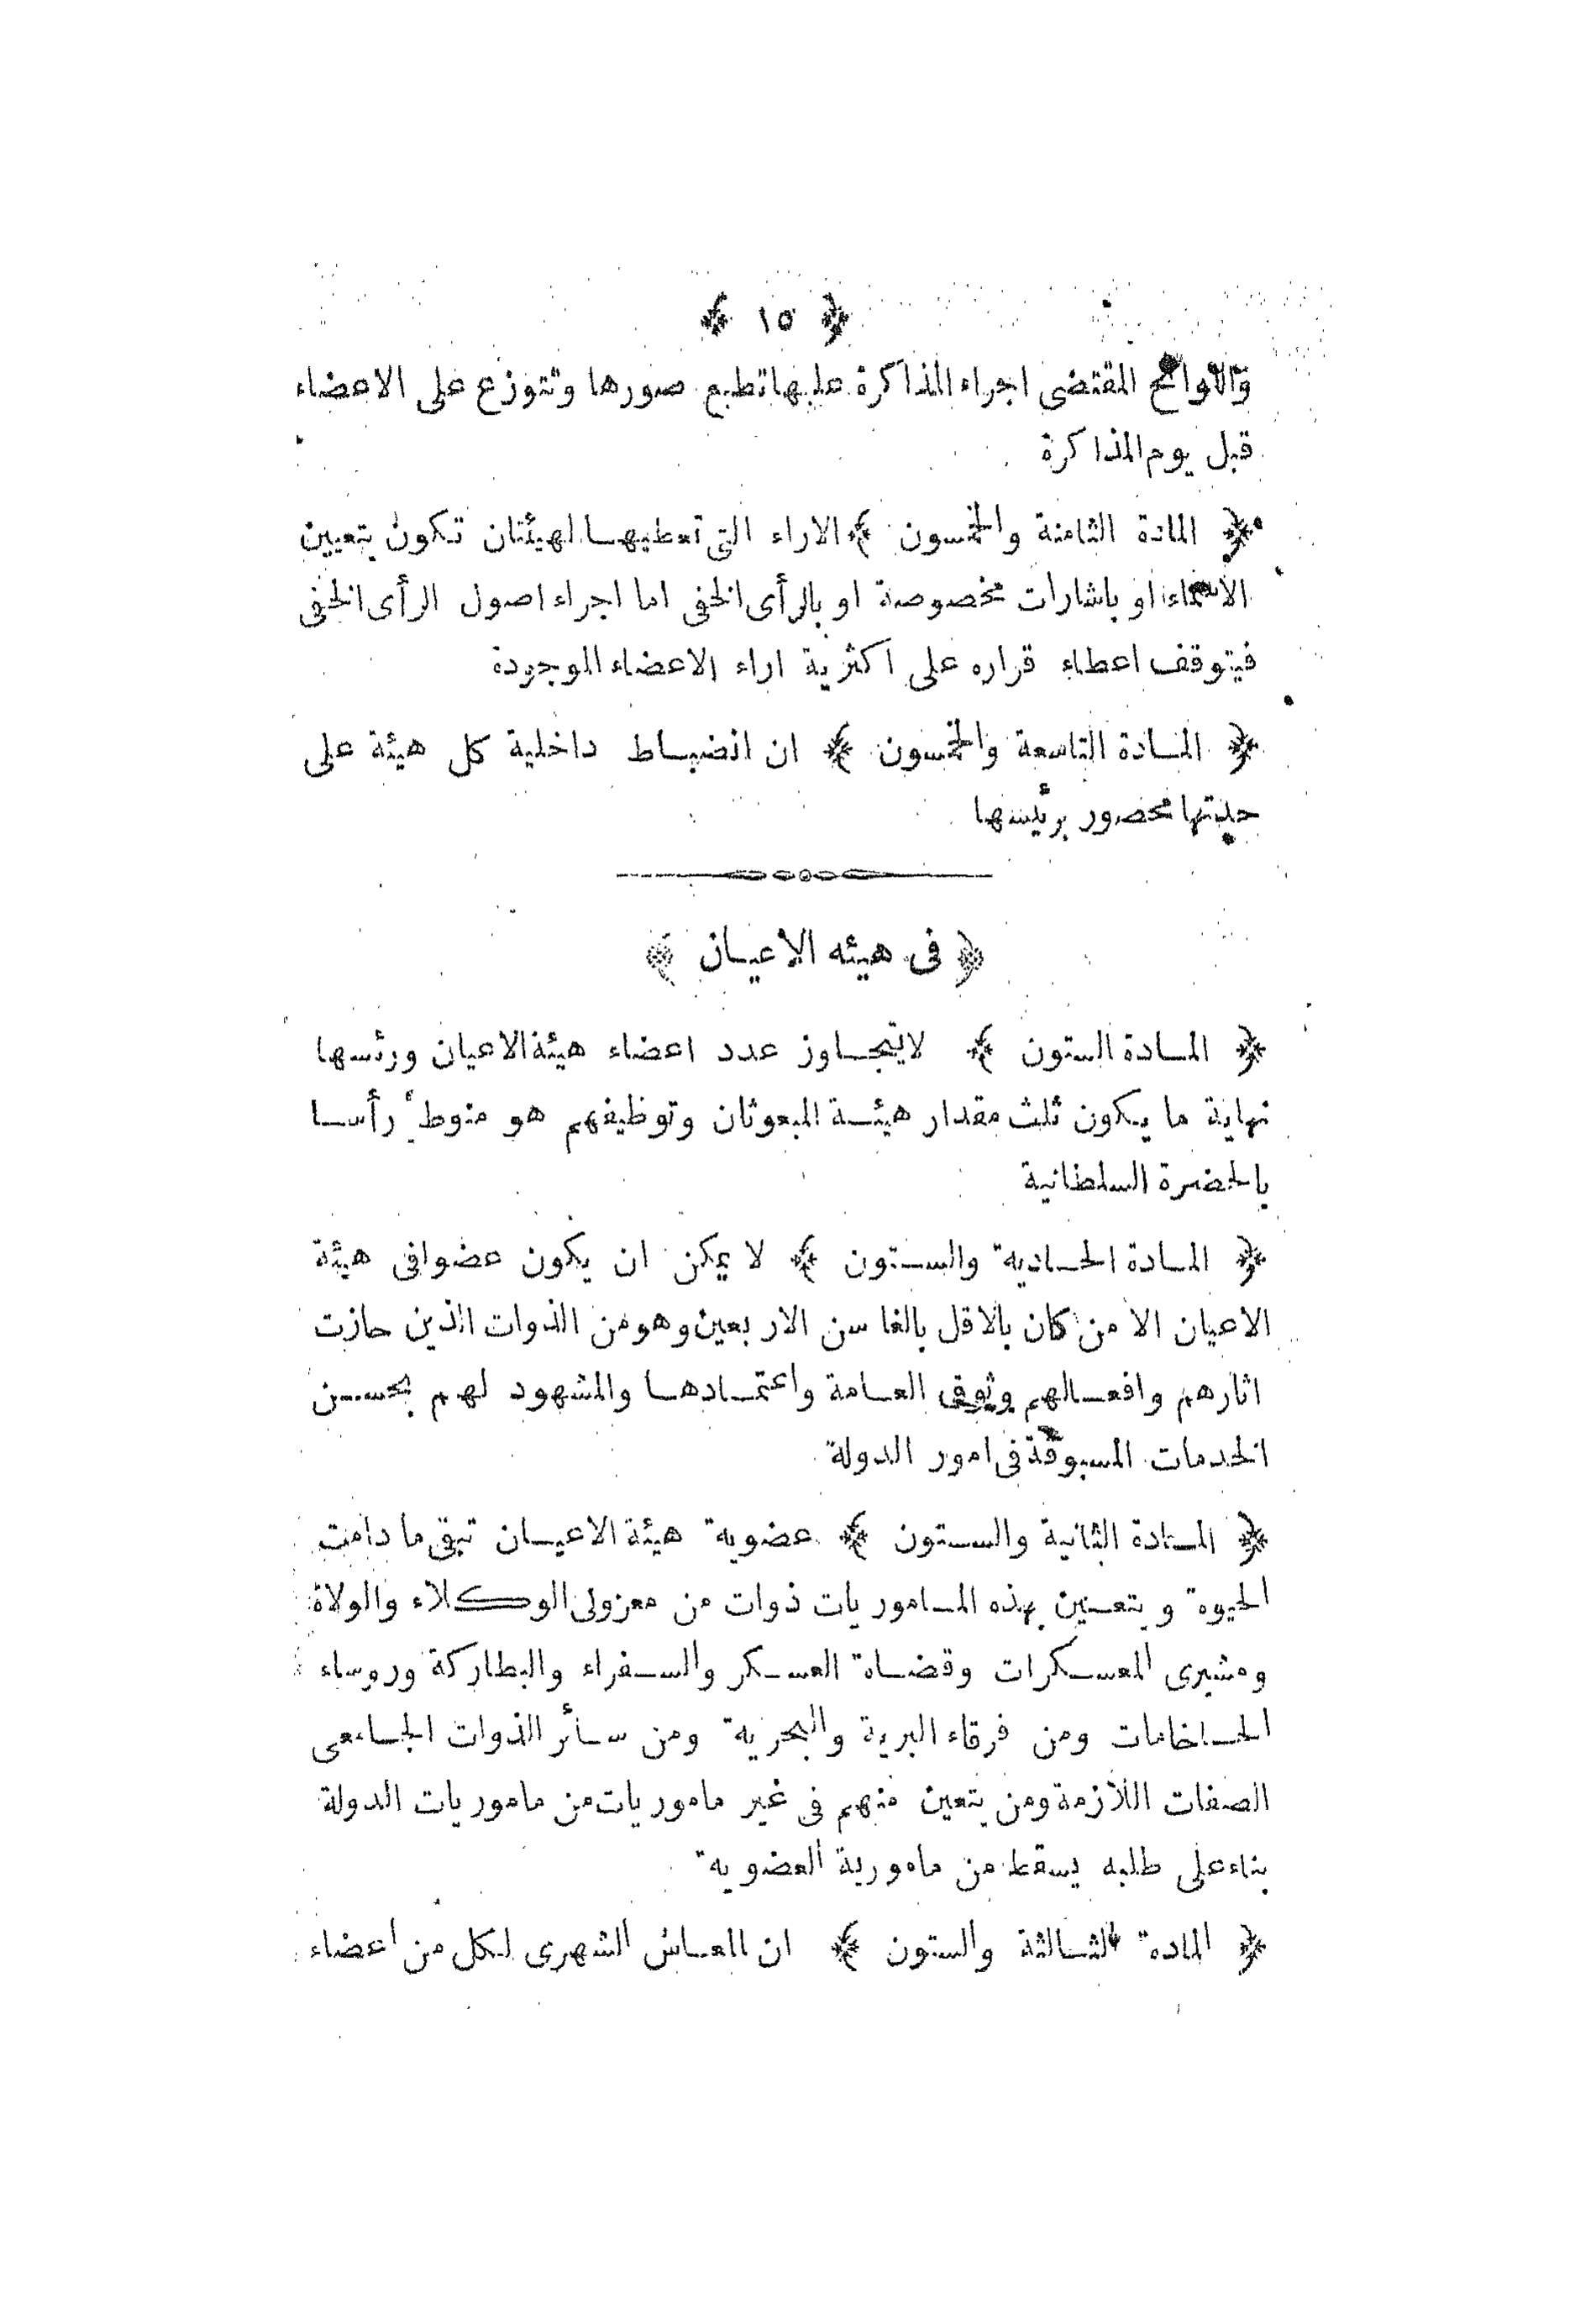 ﴿ ١٥ ﴾
واللوائح المقتضى اجراء المذاكرة عليها تطبع صورها وتتوزع على الاعضاء
قبل يوم المذاكرة
﴿ المادة الثامنة والخمسون ﴾ الاراء التى تعطيها الهيئتان تكون بتعيين
الاسماء او باشارات مخصوصة او بالرأى الخفى اما اجراء اصول الرأى الخفى
فيتوقف اعطاء قراره على اكثرية اراء الاعضاء الموجودة
﴿ المادة التاسعة والخمسون ﴾ ان انضباط داخلية كل هيئة على
حدتها محصور برئيسها
﴿ فى هيئه الاعيان ﴾
﴿ المادة الستون ﴾ لايتجاوز عدد اعضاء هيئة الاعيان ورئسها
نهاية ما يكون ثلث مقدار هيئة المبعوثان وتوظيفهم هو منوط رأسا
بالحضرة السلطانية
﴿ المادة الحادية والستون ﴾ لا يمكن ان يكون عضوا فى هيئة
الاعيان الا من كان بالاقل بالغا سن الاربعين وهو من الذوات الذين حازت
اثارهم وافعالهم وثوق العامة واعتمادها والمشهود لهم بحسن
الخدمات المسبوقة فى امور الدولة
﴿ المادة الثانية والستون ﴾ عضوية هيئة الاعيان تبقى ما دامت
الحيوة ويتعين بهذه الماموريات ذوات من معزولى الوكلاء والولاة
ومشيرى المعسكرات وقضاة العسكر والسفراء والبطاركة وروساء
الحاخامات ومن فرقاء البرية والبحرية ومن سائر الذوات الجامعى
الصفات اللازمة ومن يتعين منهم فى غير ماموريات من ماموريات الدولة
بناء على طلبه يسقط من مامورية العضوية
﴿ المادة الثالثة والستون ﴾ ان المعاش الشهرى لكل من اعضاء